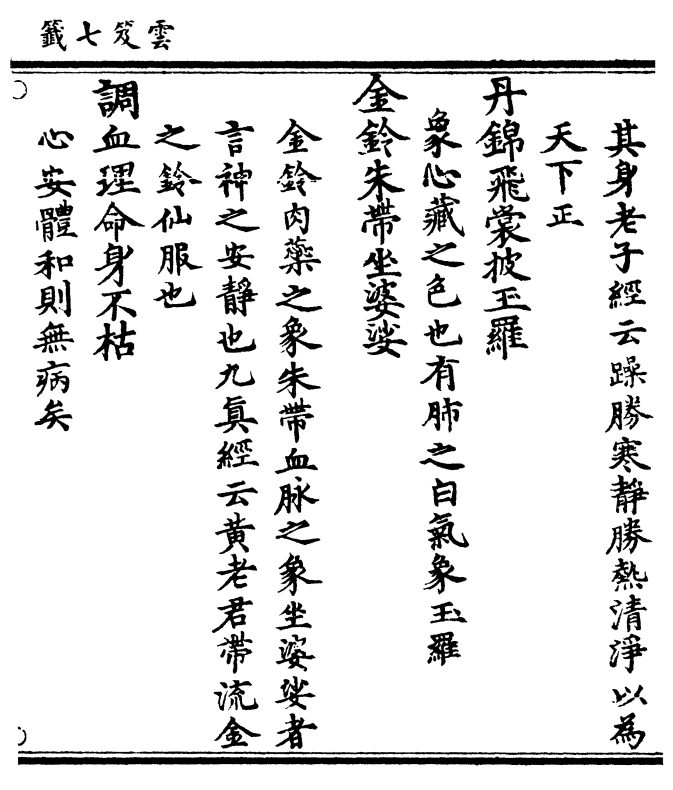 雲笈七籤
其身老子經云躁勝寒靜勝熱清淨以為
天下正
丹錦飛裳披玉羅
象心藏之色也有肺之白氣象玉羅
金鈴朱帶坐婆娑
金鈴肉藥之象朱帶血脉之象坐婆娑者
言神之安靜也九真經云黃老君帶流金
之鈴仙服也
調血理命身不枯
心安體和則無病矣